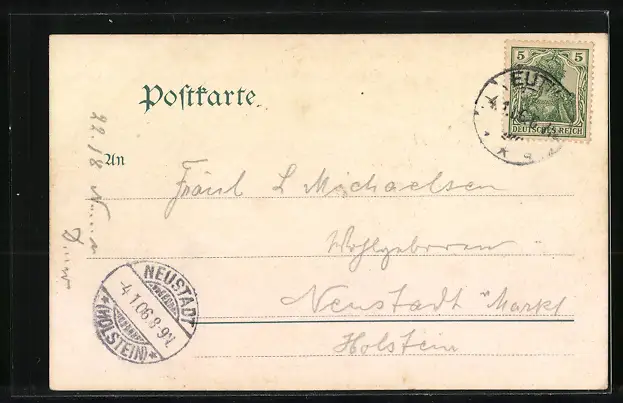 Postkarte.
5 5
DEUTSCHES REICH
EUTIN
An
Fräul L Michaelsen
Wohlgeboren
Neustadt Markt
Holstein
NEUSTADT
-4.1.06.8-9V.
*(HOLSTEIN)*
2218